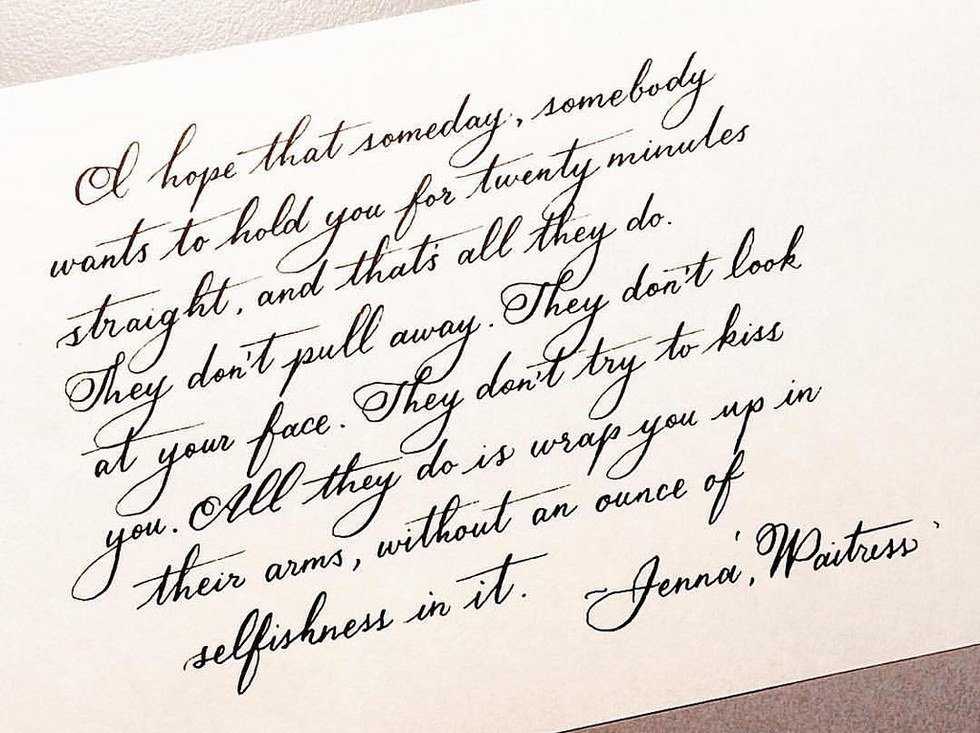 I hope that someday, somebody
wants to hold you for twenty minutes
straight, and that's all they do.
They don't pull away. They don't look
at your face. They don't try to kiss
you. All they do is wrap you up in
their arms, without an ounce of
selfishness in it.
~Jenna', Waitress'